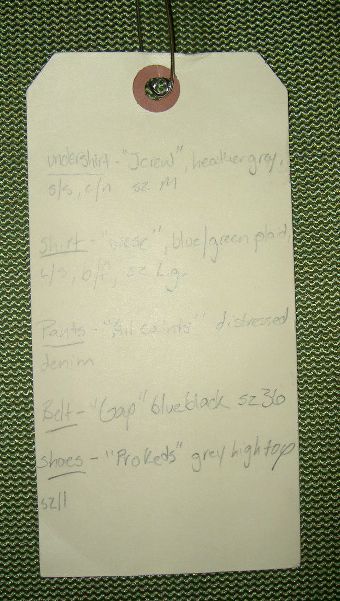 undershirt - "Jcrew", heather grey,
s/s, c/n sz M
shirt - "Diesel", blue/green plaid
l/s, b/f, sz Lg.
Pants - "All saints" distressed
denim
Belt - "Gap" blue black sz 36
shoes - "ProKeds" grey high top
sz 11